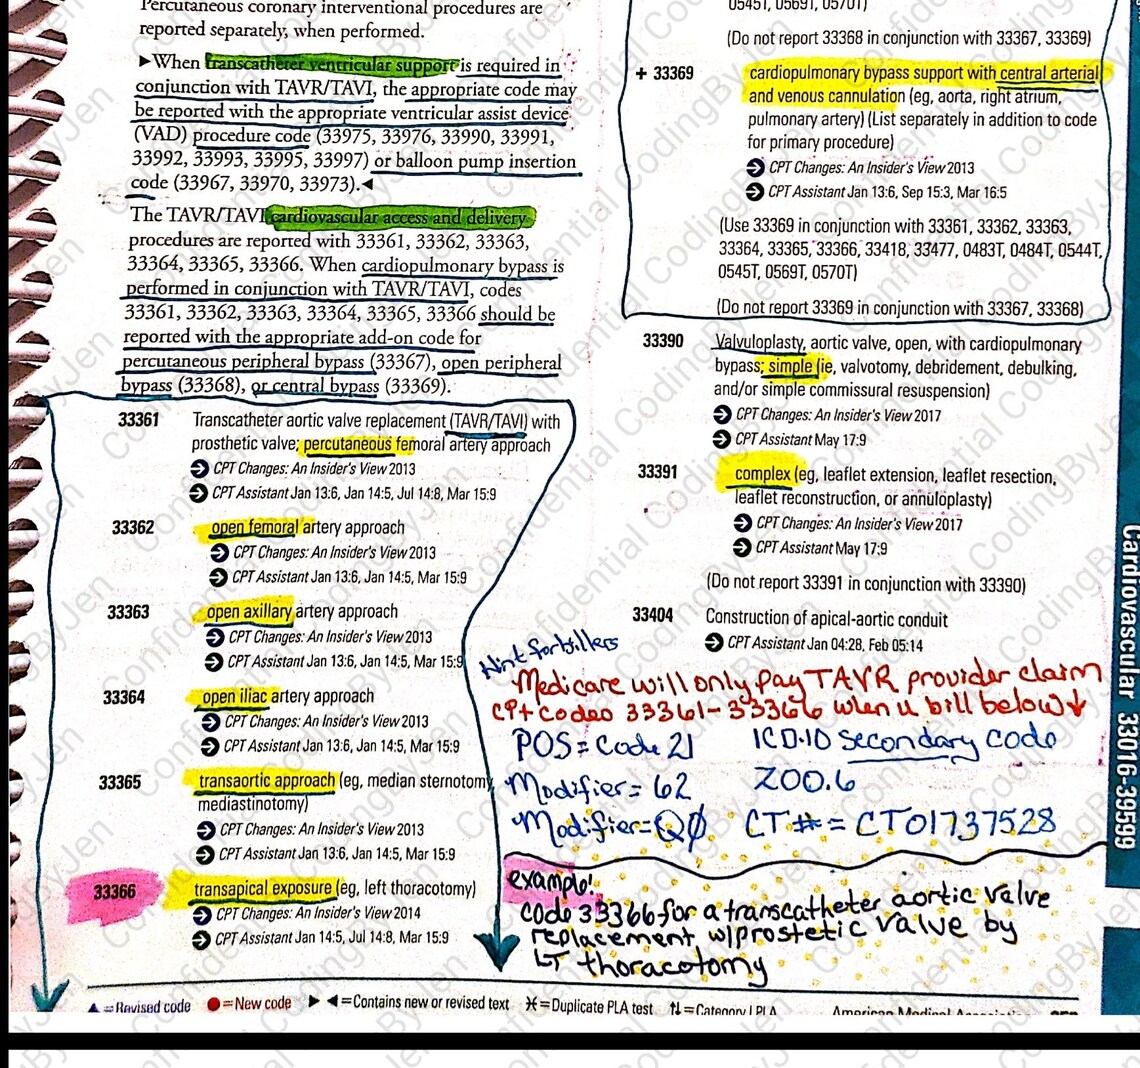 Percutaneous coronary interventional procedures are
reported separately, when performed.
▶When transcatheter ventricular support is required in
conjunction with TAVR/TAVI, the appropriate code may
be reported with the appropriate ventricular assist device
(VAD) procedure code (33975, 33976, 33990, 33991,
33992, 33993, 33995, 33997) or balloon pump insertion
code (33967, 33970, 33973).◀
The TAVR/TAVI cardiovascular access and delivery
procedures are reported with 33361, 33362, 33363,
33364, 33365, 33366. When cardiopulmonary bypass is
performed in conjunction with TAVR/TAVI, codes
33361, 33362, 33363, 33364, 33365, 33366 should be
reported with the appropriate add-on code for
percutaneous peripheral bypass (33367), open peripheral
bypass (33368), or central bypass (33369).
33361 Transcatheter aortic valve replacement (TAVR/TAVI) with
prosthetic valve; percutaneous femoral artery approach
CPT Changes: An Insider's View 2013
CPT Assistant Jan 13:6, Jan 14:5, Jul 14:8, Mar 15:9
33362 open femoral artery approach
CPT Changes: An Insider's View 2013
CPT Assistant Jan 13:6, Jan 14:5, Mar 15:9
33363 open axillary artery approach
CPT Changes: An Insider's View 2013
CPT Assistant Jan 13:6, Jan 14:5, Mar 15:9
33364 open iliac artery approach
CPT Changes: An Insider's View 2013
CPT Assistant Jan 13:6, Jan 14:5, Mar 15:9
33365 transaortic approach (eg, median sternotomy,
mediastinotomy)
CPT Changes: An Insider's View 2013
CPT Assistant Jan 13:6, Jan 14:5, Mar 15:9
33366 transapical exposure (eg, left thoracotomy)
CPT Changes: An Insider's View 2014
CPT Assistant Jan 14:5, Jul 14:8, Mar 15:9
0545T, 0569T, 0570T)
(Do not report 33368 in conjunction with 33367, 33369)
+ 33369 cardiopulmonary bypass support with central arterial
and venous cannulation (eg, aorta, right atrium,
pulmonary artery) (List separately in addition to code
for primary procedure)
CPT Changes: An Insider's View 2013
CPT Assistant Jan 13:6, Sep 15:3, Mar 16:5
(Use 33369 in conjunction with 33361, 33362, 33363,
33364, 33365, 33366, 33418, 33477, 0483T, 0484T, 0544T,
0545T, 0569T, 0570T)
(Do not report 33369 in conjunction with 33367, 33368)
33390 Valvuloplasty, aortic valve, open, with cardiopulmonary
bypass; simple (ie, valvotomy, debridement, debulking,
and/or simple commissural resuspension)
CPT Changes: An Insider's View 2017
CPT Assistant May 17:9
33391 complex (eg, leaflet extension, leaflet resection,
leaflet reconstruction, or annuloplasty)
CPT Changes: An Insider's View 2017
CPT Assistant May 17:9
(Do not report 33391 in conjunction with 33390)
33404 Construction of apical-aortic conduit
CPT Assistant Jan 04:28, Feb 05:14
Hint for billers
Medicare will only pay TAVR provider claim
CPt codes 33361-33366 when u bill below↓
POS = Code 21 ICD-10 secondary code
Modifier = 62 Z00.6
Modifier = Q0 CT # = CT01737528
example!
code 33366 for a transcatheter aortic valve
replacement w/prostetic valve by
LT thoracotomy
Cardiovascular 33016-39599
▲=Revised code ●=New code ▶ ◀=Contains new or revised text Ж=Duplicate PLA test ⇅=Category I PLA American Medical
Confidential CodingByJen